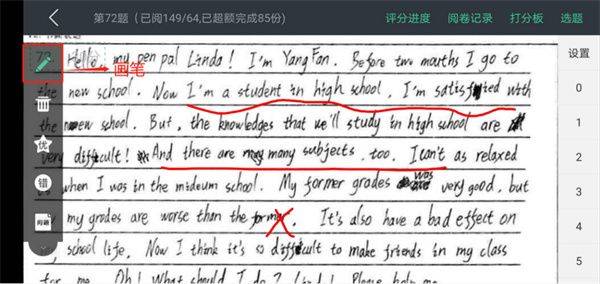 第72题（已阅149/64,已超额完成85份）
评分进度 阅卷记录 打分板 选题
Hello, my pen pal Linda! I'm Yang Fan. Before two mouths I go to
画笔
the new school. Now I'm a student in high school. I'm satisfied with
the new school. But, the knowledges that we'll study in high school are
very difficult! And there are many subjects, too. I can't as relaxed
when I was in the mideum school. My former grades was very good, but
my grades are worse than the former. It's also have a bad effect on
school life. Now I think it's so difficult to make friends in my class
for me. Oh! What should I do? Please help me.
优
错
问题
设置
0
1
2
3
4
5